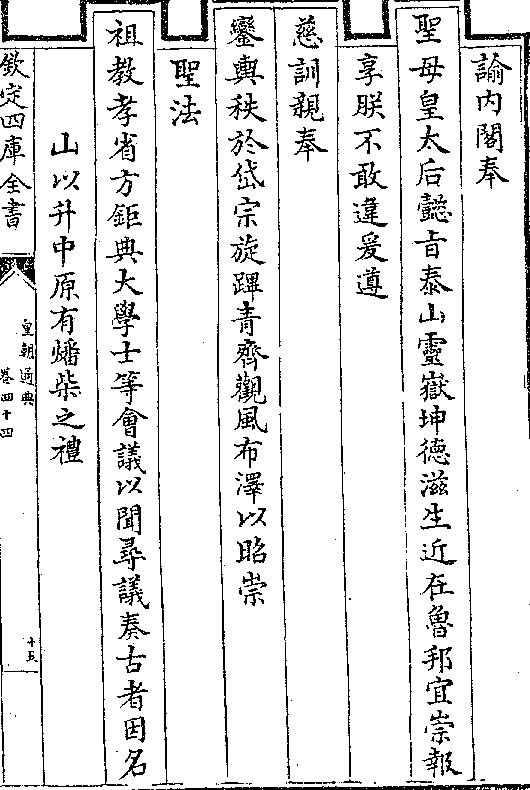 諭内閣奉
聖母皇太后懿㫖泰山靈嶽坤德滋生近在魯邦宜崇報
享朕不敢違爰遵
慈訓親奉
鑾輿秩於岱宗旋蹕青齊觀風布澤以昭崇
聖法
祖教孝省方鉅典大學士等會議以聞尋議奏古者因名
山以升中原有燔柴之禮
欽定四庫全書
皇朝通典
卷四十四
十五